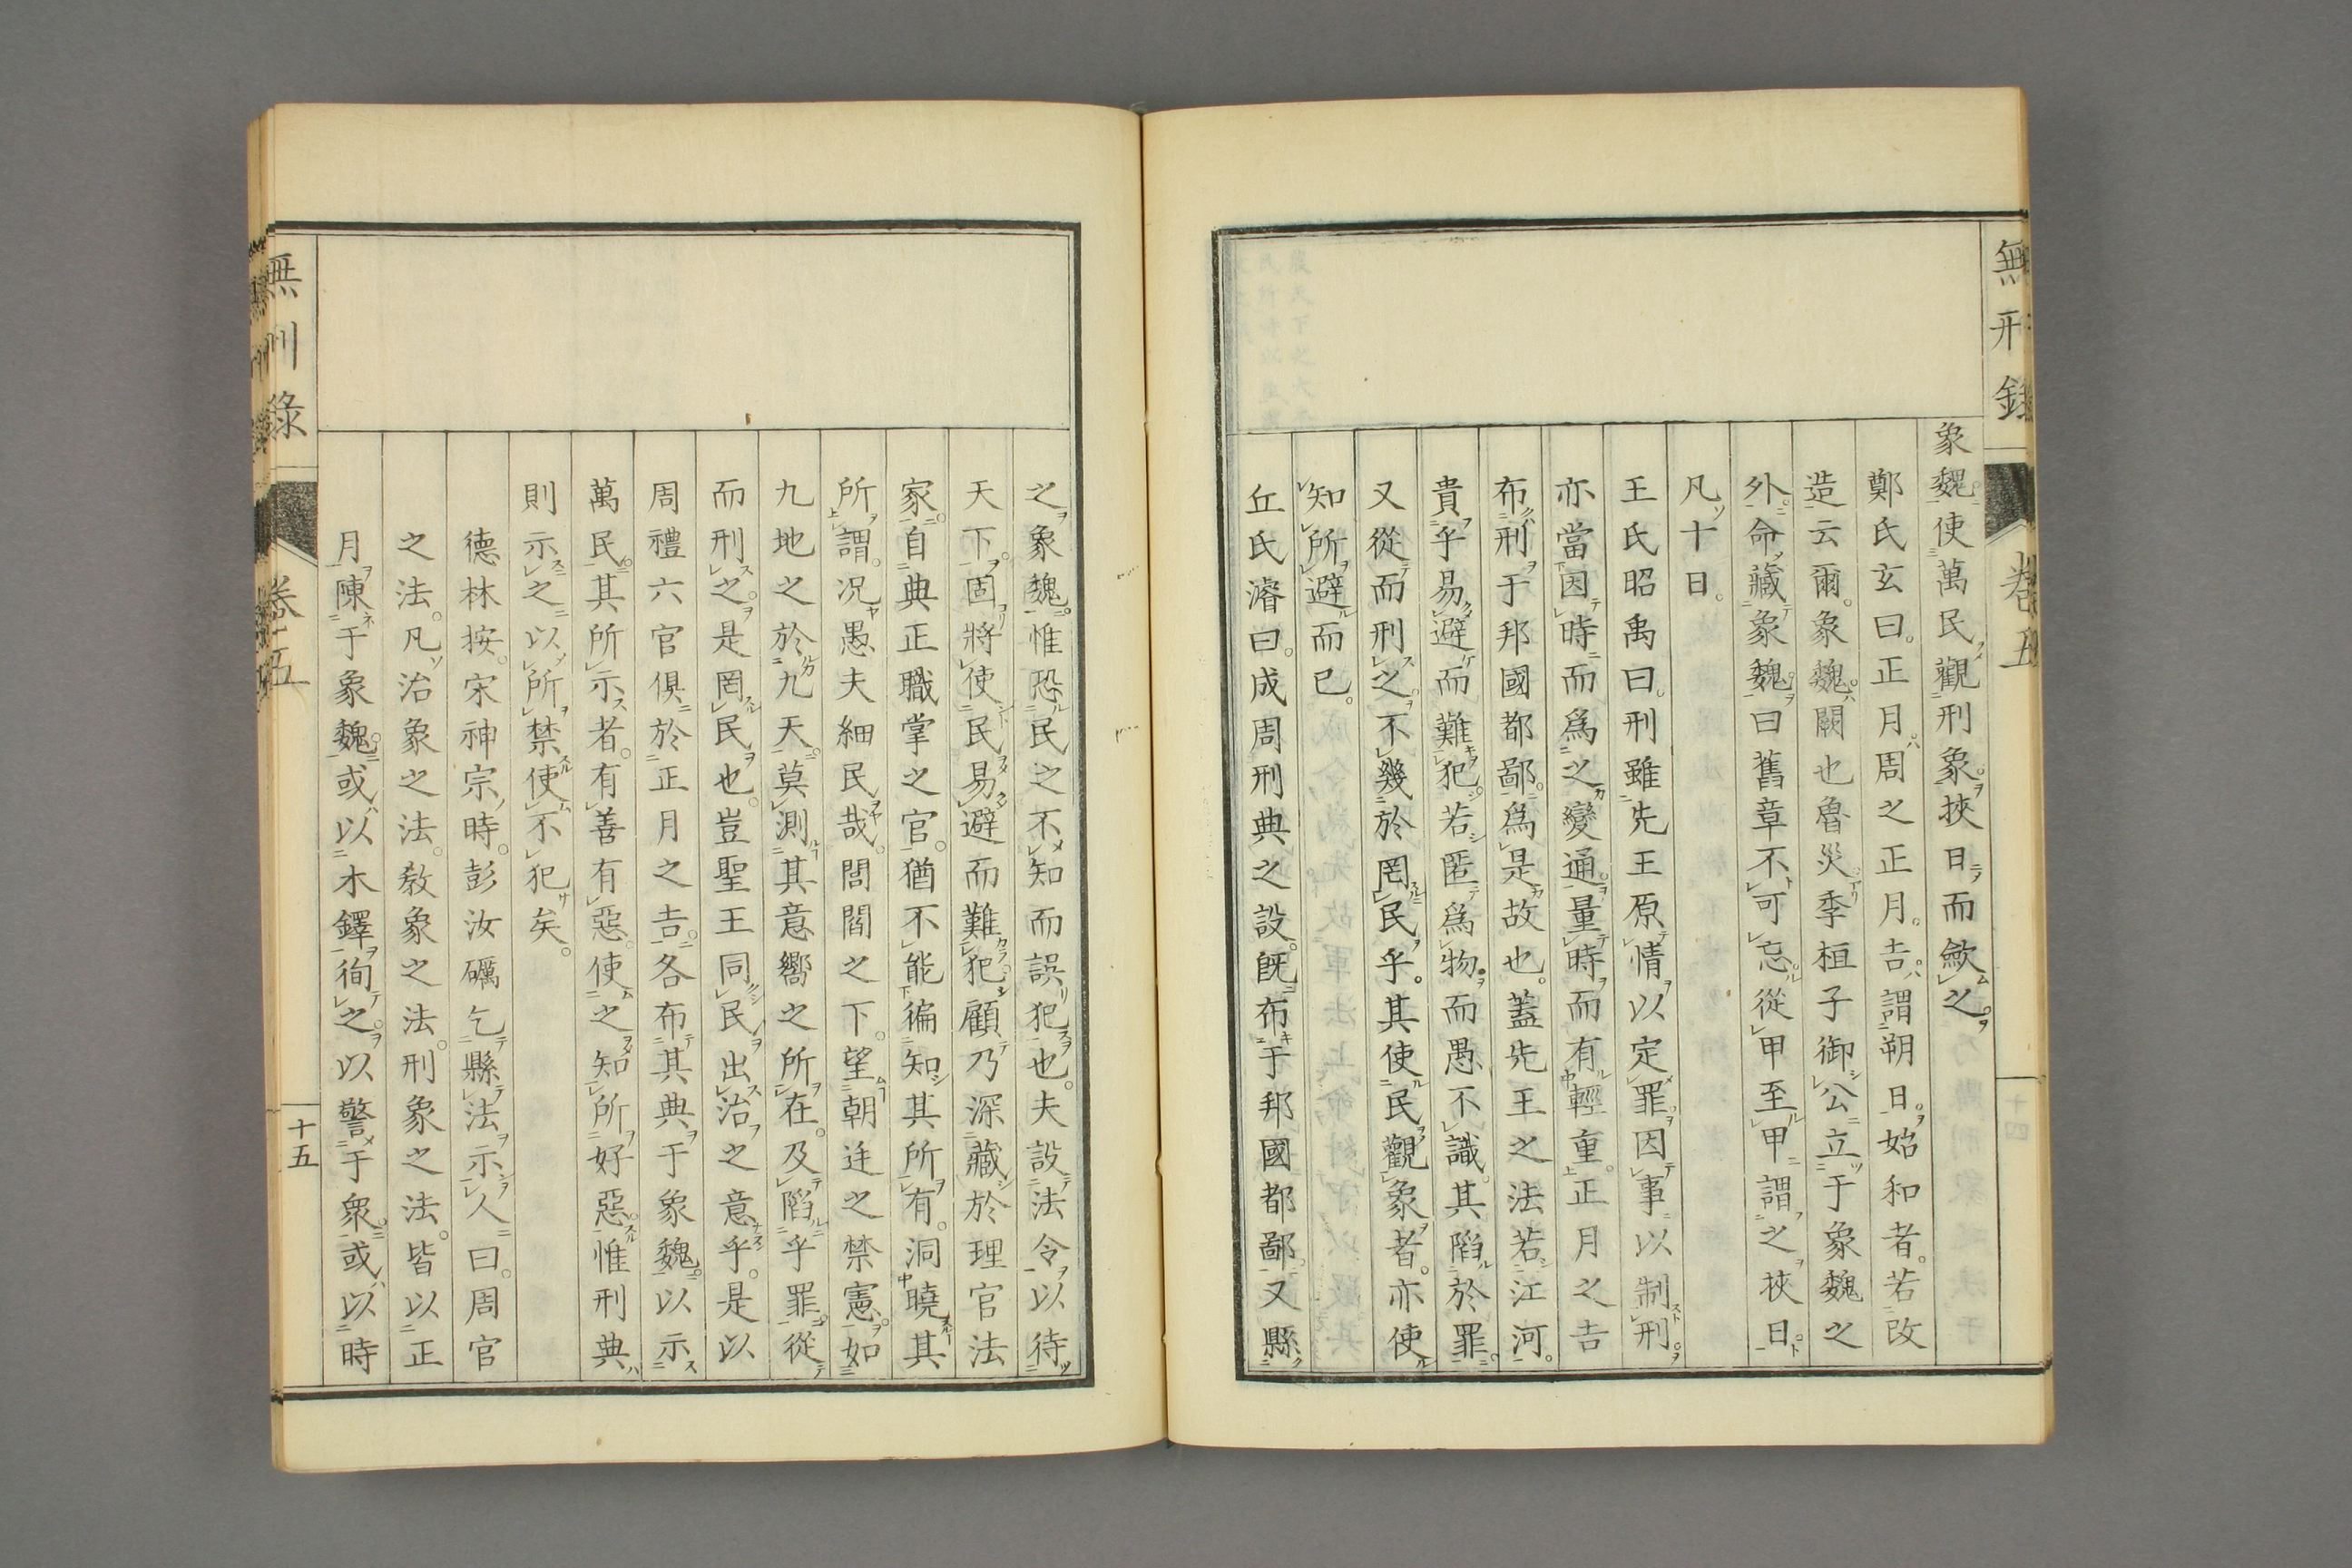 無刑錄
卷五
十四
象魏使萬民觀刑象挾日而斂之
鄭氏玄曰正月周之正月吉謂朔日始和者若改
造云爾象魏闕也魯災季桓子御公立于象魏之
外命藏象魏曰舊章不可忘從甲至甲謂之挾日
凡十日
王氏昭禹曰刑雖先王原情以定罪因事以制刑
亦當因時而爲之變通量時而有輕重正月之吉
布刑于邦國都鄙爲是故也蓋先王之法若江河
貴乎易避而難犯若匿爲物而愚不識其陷於罪
又從而刑之不幾於罔民乎其使民觀象者亦使
知所避而已
丘氏濬曰成周刑典之設既布于邦國都鄙又縣
之象魏惟恐民之不知而誤犯也夫設法令以待
天下固將使民易避而難犯顧乃深藏於理官法
家自典正職掌之官猶不能徧知其所有洞曉其
所謂况愚夫細民哉閭閻之下望朝廷之禁憲如
九地之於九天莫測其意嚮之所在及陷乎罪從
而刑之是罔民也豈聖王同民出治之意乎是以
周禮六官俱於正月之吉各布其典于象魏以示
萬民其所示者有善有惡使之知所好惡惟刑典
則示之以所禁使不犯矣
德林按宋神宗時彭汝礪乞縣法示人曰周官
之法凡治象之法敎象之法刑象之法皆以正
月陳于象魏或以木鐸徇之以警于衆或以時
無刑錄
卷五
十五